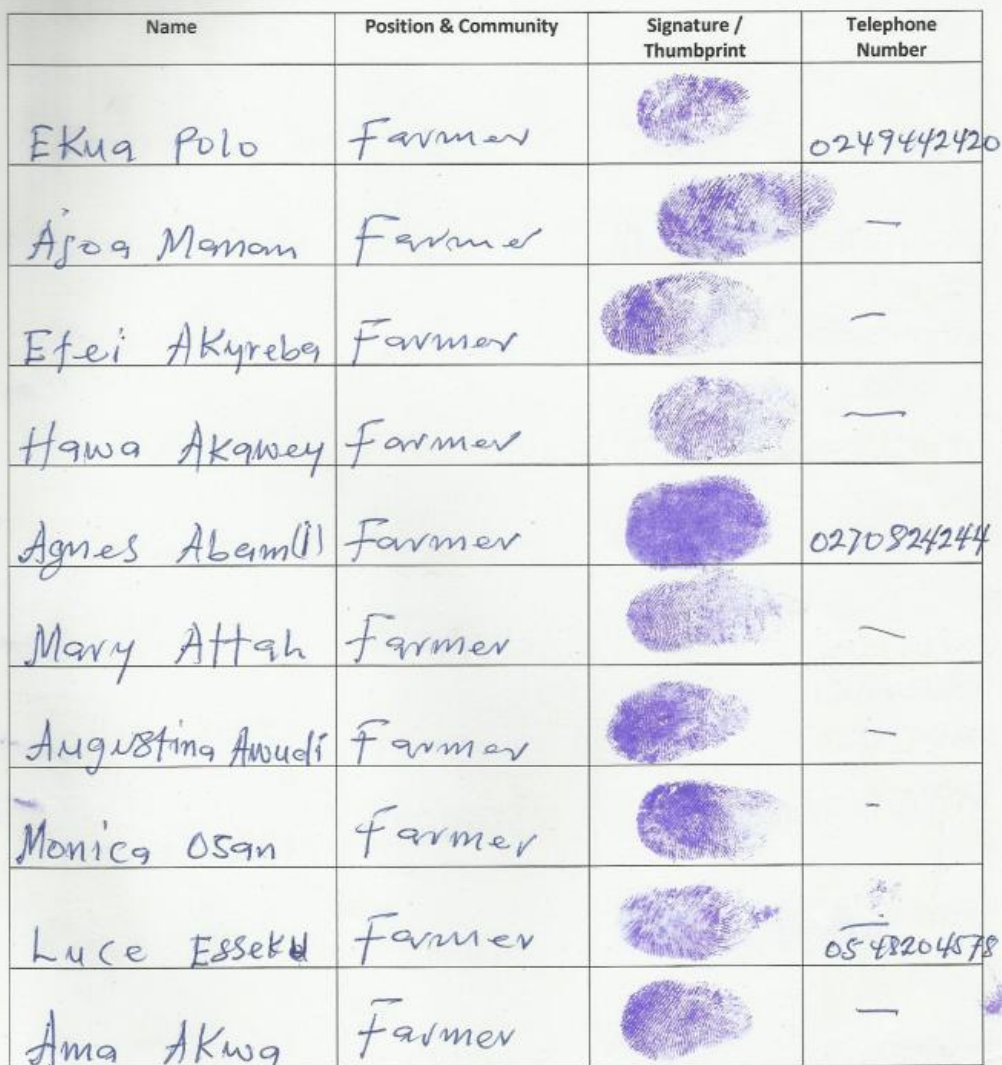 Name Position & Community Signature / Thumbprint Telephone Number
Ekua Polo Farmer 0249442420
Ajoa Manan Farmer —
Efei Akyreba Farmer —
Hawa Akawey Farmer —
Agnes Abam(1) Farmer 0270824244
Mary Attah Farmer —
Augustina Awudi Farmer —
Monica Osan Farmer -
Luce Esseku Farmer 0548204578
Ama Akwa Farmer —